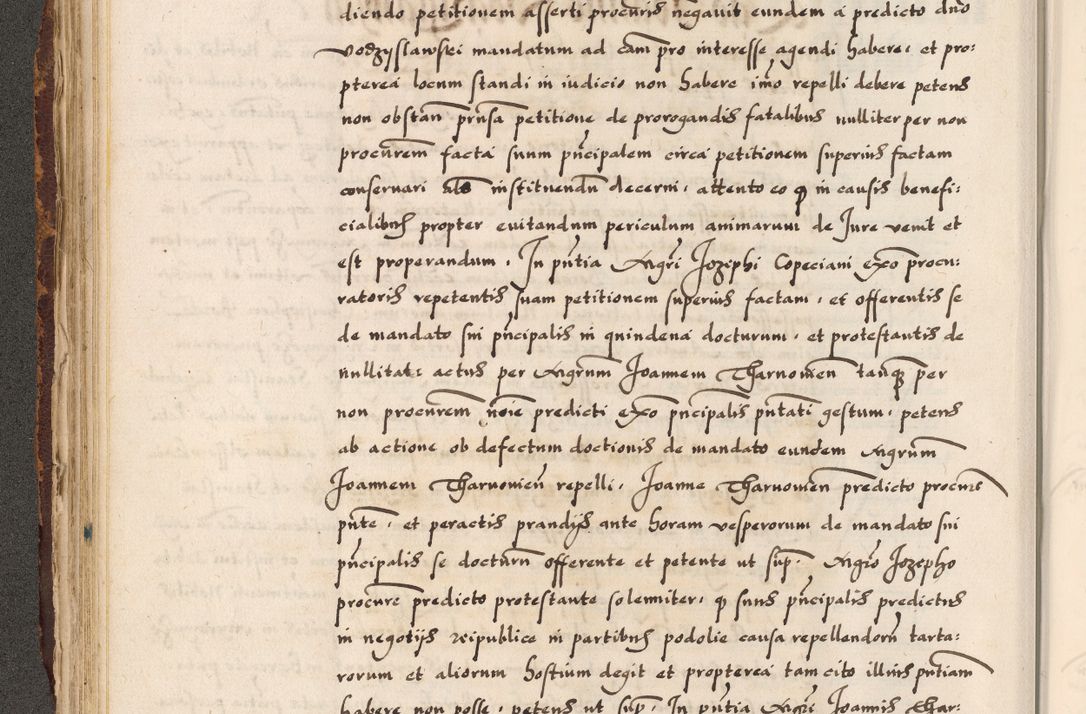 diendo petitionem asserti procuris negavit eundem a predicto dno
vodzyslawskei mandatum ad eam pro interesse agendi habere, et pro:
pterea locum standi in iudicio non habere imo repelli debere petens
non obstan prnsa petitione de prorogandis fatalibus nulliter per non
procurem facta suum pncipalem circa petitionem superius factam
conservari als instituendu decerni, attento eo q in causis benefi:
cialibus propter evitandum periculum animarum de Jure venit et
est properandum. In pntia Magri Jozephi Copeciani exo procu:
ratoris repetentis suam petitionem superius factam, et offerentis se
de mandato sui pncipalis in quindena docturum, et protestantis de
nullitate actus per Magrum Joannem Tharnovien tanq per
non procurem noie predicti exo pncipalis pntati gestum, petens
ab actione ob defectum doctionis de mandato eundem Magrum
Joannem Tharnovien repelli, Joanne Tharnovien predicto procure
pnte, et peractis prandijs ante horam vesperorum de mandato sui
pncipalis se docturu offerente et petente ut sup. Magro Jozepho
procure predicto protestante solenniter, q suus pncipalis predictus
in negotijs reipublice in partibus podolie causa repellendoru tarta:
rorum et aliorum hostium degit et propterea tam cito illius pntiam
habere non posse, petens ut sup. In pntia Magri Joannis Thar: